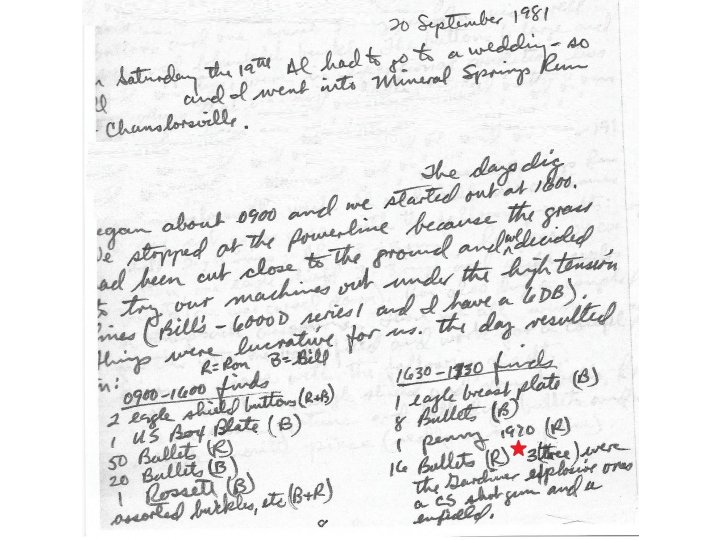 20 September 1981
Saturday the 19th Al had to go to a wedding - so
and I went into Mineral Springs Run
- Chanslorsville.
The days dig
egan about 0900 and we started out at 1600.
e stopped at the powerline because the grass
ad been cut close to the ground and we decided
to try our machines out under the high tension
lines (Bill's - 6000D series 1 and I have a 6DB).
things were lucrative for us. The day resulted
in:
R=Ron B=Bill
0900-1600 finds
2 eagle shield buttons (R+B)
1 US Box Plate (B)
50 Bullets (R)
20 Bullets (B)
1 Rossett (B)
assorted buckles, etc (B+R)
1630-1730 finds
1 eagle breast plate (B)
8 Bullets (B)
1 penny 1920 (R)
16 Bullets (R) 3 (three) were
the Gardiner explosive ones
a CS shot gun and a
enfield.